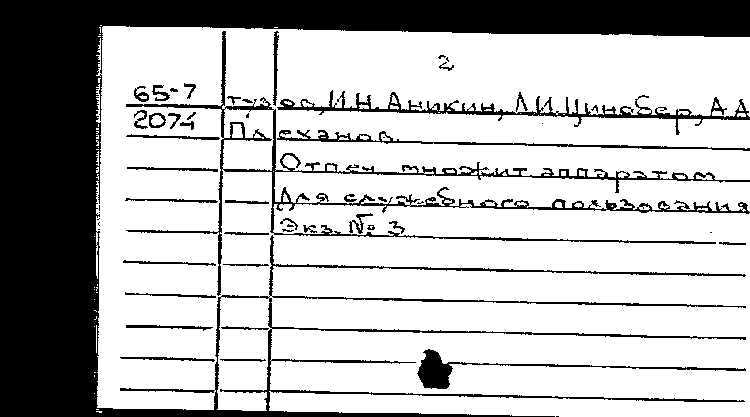 2
65-7 тузов, И.Н. Аникин, Л.И. Цинобер, А.А
2074 Плеханов.
Отпеч. множит аппаратом
Для служебного пользования
Экз. № 3